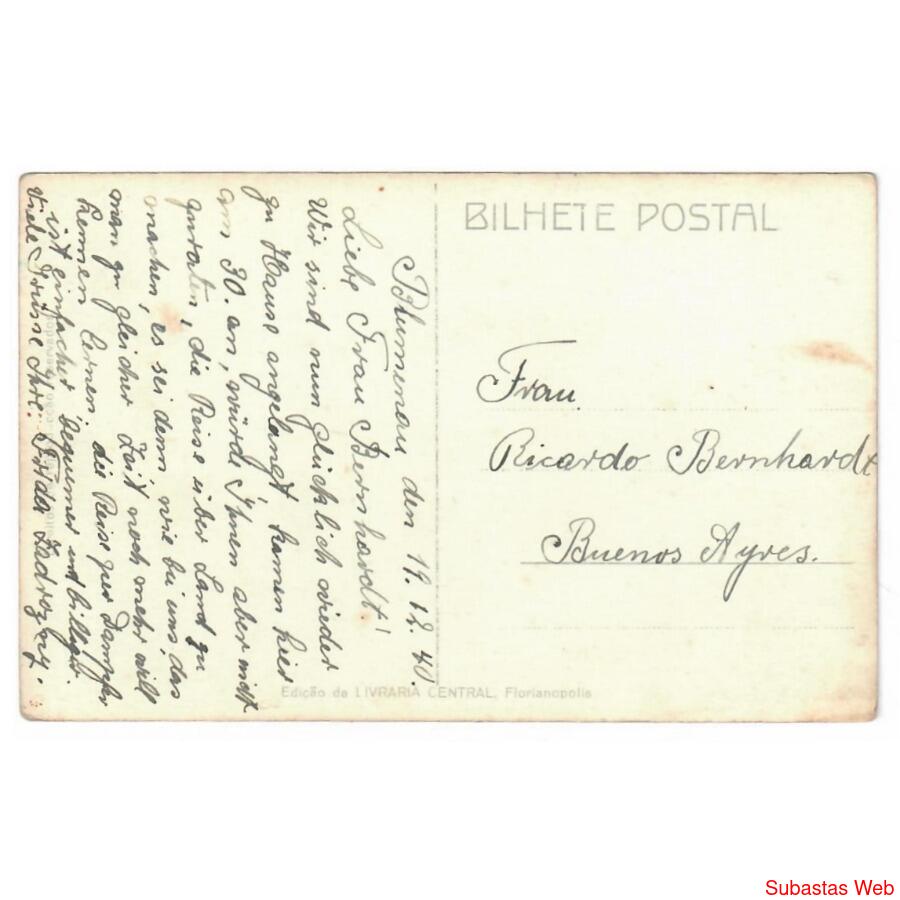 BILHETE POSTAL
Blumenau den 19.12.40.
Liebe Frau Bernhardt!
Wir sind nun glücklich wieder
zu Hause angelangt kamen hier
am 30. an, würde Ihnen aber nicht
zuraten, die Reise über Land zu
machen, es sei denn, wie bei uns, das
man zu gleicher Zeit noch mehr will
kennen lernen, die Reise per Dampfer
ist einfacher, bequemer und billiger.
Viele Grüsse Ihre Frida
Frau
Ricardo Bernhardt
Buenos Ayres.
Edição da LIVRARIA CENTRAL, Florianopolis
Subastas Web